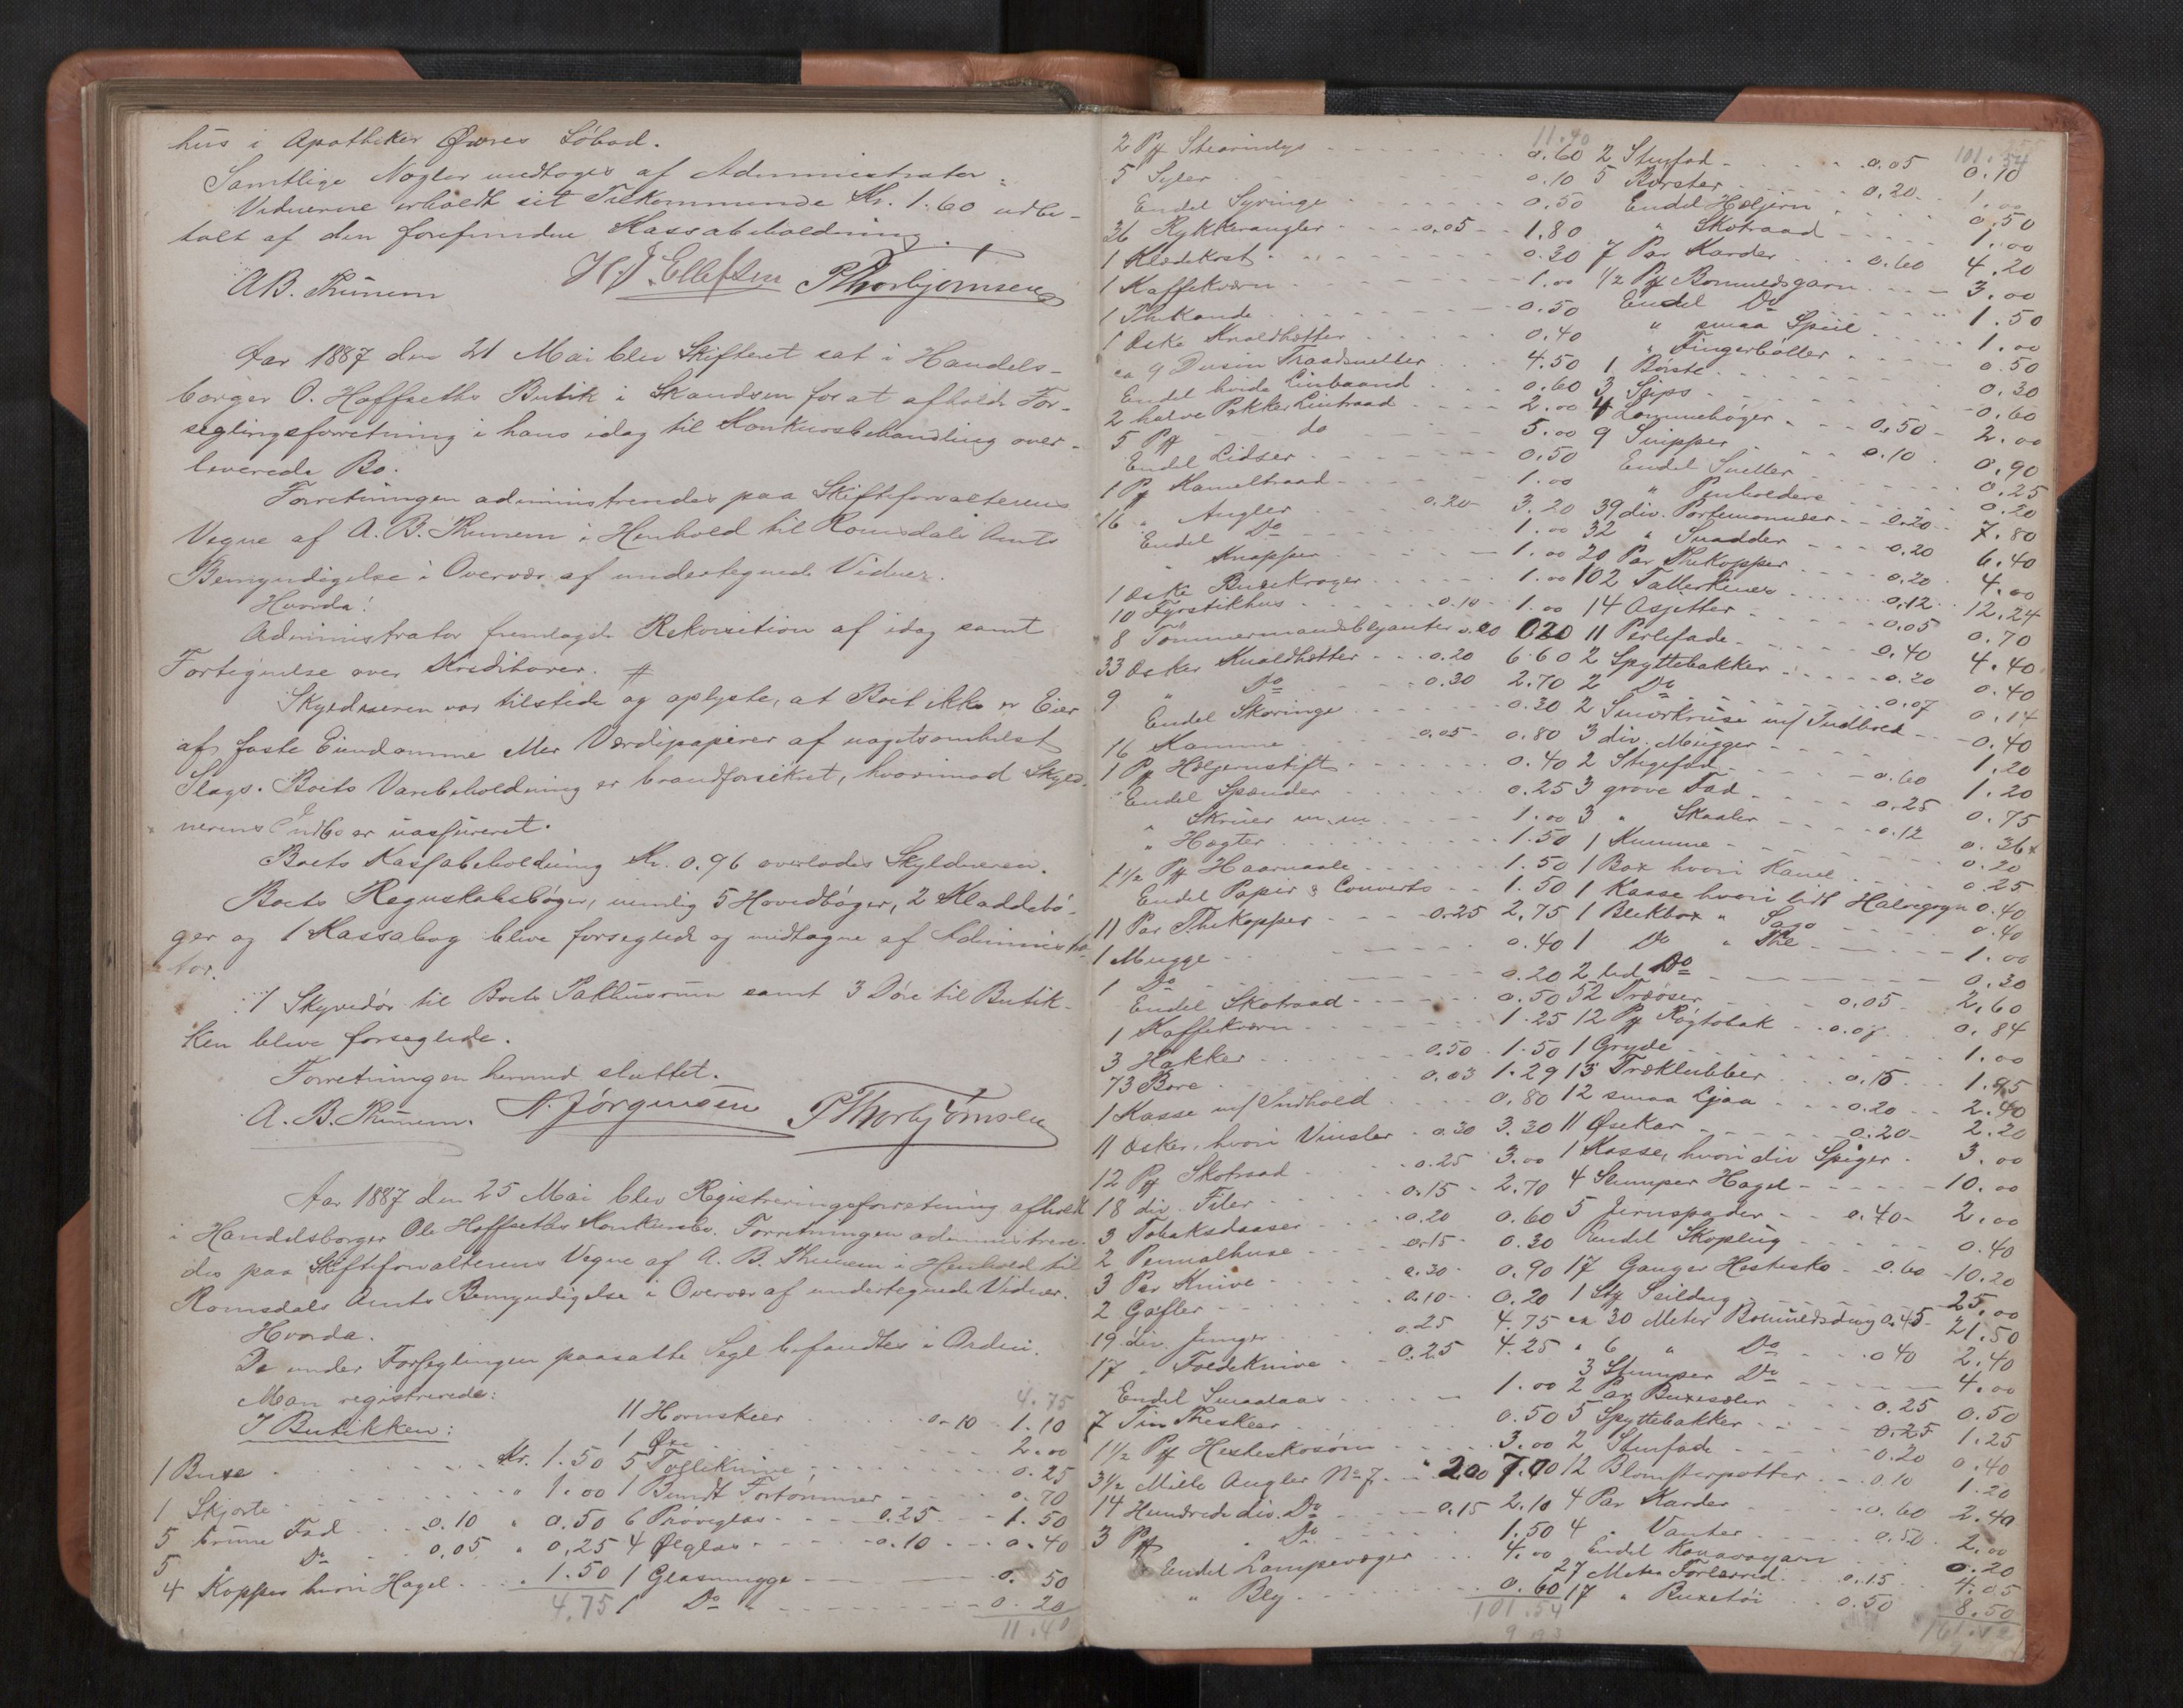 hus i Apotheker Øwres Søbod.
Samtlige Nøgler modtoges af Administrator.
Vidnerne erholdt sit Tilkommende Kr. 1.60 udbe-
talt af den forefundne Kassabeholdning.
A.B. Thunem H.J. Ellefsen P Thorbjørnsen
Aar 1887 den 21 Mai blev Skifteret sat i Handels-
borger O. Hoffseths Butik i Skandsen for at afholde For-
seglingsforretning i hans idag til Konkursbehandling over-
leverede Bo.
Forretningen administreredes paa Skifteforvalterens
Vegne af A. B. Thunem i Henhold til Romsdals Amts
Bemyndigelse i Overvær af undertegnede Vidner.
Hvorda!
Administrator fremlagde Rekvisition af idag samt
Fortegnelse over Kreditorer. #
Skyldneren var tilstede og oplyste, at Boet ikke er Eier
af faste Eiendomme eller Værdipapirer af nogetsomhelst
Slags. Boets Varebeholdning er brandforsikret, hvorimod Skyld-
nerens Indbo er uassureret.
Boets Kassabeholdning Kr. 0.96 overlodes Skyldneren.
Boets Regnskabsbøger, nemlig 5 Hovedbøger, 2 Kladdebø-
ger og 1 Kassabog bleve forseglede og modtagne af Administra-
tor.
1 Skyvedør til Boets Pakhusrum samt 3 Døre til Butik-
ken bleve forseglede.
Forretningen hermed sluttet.
A. B. Thunem. N. Jørgensen P Thorbjørnsen
Aar 1887 den 25 Mai blev Registreringsforretning afholdt
i Handelsborger Ole Hoffseths Konkursbo. Forretningen administrere-
des paa Skifteforvalterens Vegne af A. B. Thunem i Henhold til
Romsdals Amts Bemyndigelse i Overvær af undertegnede Vidner.
Hvorda.
De under Forseglingen paasatte Segl befandtes i Orden.
Man registrerede:
I Butikken:
1 Buxe Kr. 1.50
1 Skjorte " 1.00
5 brune Fad 0.10 " 0.50
5 " Do 0.05 " 0.25
4 Kopper hvori Hagel 1.50
4.75
4.75
11 Hornskeer 0.10 1.10
1 Øxe 2.00
5 Tælleknive 0.25
1 Bundt Fortømmer 0.70
6 Prøveglas 0.25 1.50
4 Ølglas 0.10 0.40
1 Glasmugge 0.50
1 Do 0.20
11.40
11.40
2 Pf Stearinlys 0.60
5 Syler 0.10
Endel Syringe 0.50
36 Rykkerangler 0.05 1.80
1 Klædekost 0.30
1 Kaffekværn 1.00
1 Thekande 0.50
1 Æske Knaldhætter 0.40
ca 9 Dusin Traadsneller 4.50
Endel hvide Linbaand 0.60
2 halve Pakker Lintraad 2.00
5 Pf do 5.00
Endel Lidser 0.50
1 Pf Kameltraad 1.00
16 " Angler 0.20 3.20
Endel Do 1.00
" Knapper 1.00
1 Æske Buxekroger 1.00
10 Fyrstikhus 0.10 1.00
8 Tømmermandsblyanter 020
33 Æsker Knaldhætter 0.20 6.60
9 " Do 0.30 2.70
Endel Skoringe 0.30
16 Kamme 0.05 0.80
1 Pf Hæljernstift 0.40
Endel Spænder 0.25
" Skruer m.m 1.00
" Hægter 1.50
1½ Pf Haarnaale 1.50
Endel Papir & Couverts 1.50
11 Par Thekopper 0.25 2.75
1 Mugge 0.40
1 Do 0.20
Endel Skotraad 0.50
1 Kaffekværn 1.25
3 Hakker 0.50 1.50
73 Bore 0.03 1.29
1 Kasse m/ Indhold 0.80
11 Æsker, hvori Vinsler 0.30 3.30
12 Pf Skotraad 0.25 3.00
18 div. Filer 0.15 2.70
3 Tobaksdaaser 0.20 0.60
2 Pennalhuse 0.15 0.30
3 Par Knive 0.30 0.90
2 Gafler 0.10 0.20
19 div. Junger 0.25 4.75
17 " Foldeknive 0.25 4.25
Endel Smaalaas 1.00
7 Tin Theskeer 0.50
1½ Pf Hesteskosøm 3.00
3½ Mille Angler No 7 200 7.00
14 Hundrede div. Do 0.15 2.10
3 Pf " Do 1.50
Endel Lampevæger 4.00
" Bly 0.60
101.54
101.54
2 Stenfad 0.05 0.10
5 Børster 0.20 1.00
Endel Hæljern 0.50
" Skotraad 1.00
7 Par Karder 0.60 4.20
½ Pf Bomuldsgarn 3.00
Endel Do 1.50
" smaa Speil 1.00
" Fingerbøller 0.50
1 Børste 0.30
3 Slips 0.60
4 Lommebøger 0.50 2.00
9 Snipper 0.10 0.90
Endel Sneller 0.25
" Penholdere 0.20
39 div. Portemonnæer 0.20 7.80
32 " Snadder 0.20 6.40
20 Par Thekopper 0.20 4.00
102 Tallerkener 0.12 12.24
14 Asjetter 0.05 0.70
11 Perlefade 0.40 4.40
2 Spyttebakker 0.20 0.40
2 Do 0.07 0.14
2 Smørkruse m/ Indhold 0.40
3 div. Mugger 1.20
2 Stegefad 0.60 1.20
3 grove Fad 0.25 0.75
3 " Skaaler 0.12 0.36
1 Kumme 0.20
1 Box hvori Kanel 0.25
1 Kasse hvori lidt Halvegryn 0.40
1 Blikbox " Sago 0.40
1 Do " The 1.00
2 led. Do 0.30
52 Træøser 0.05 2.60
12 Pf Røgtobak 0.07 0.84
1 Gryde 1.00
13 Træklubber 0.15 1.95
12 smaa Ljaa 0.20 2.40
11 Øsekar 0.20 2.20
1 Kasse, hvori div Spiger 3.00
4 Slumper Hagel 10.00
5 Jernspader 0.40 2.00
Endel Skoplug 0.40
17 Ganger Hestesko 0.60 10.20
1 Seildug 25.00
ca 30 Meter Bomuldsdug 0.45 21.50
" 6 " Do 0.40 2.40
3 Stumper Do 4.00
2 Par Buxeseler 0.25 0.50
5 Spyttebakker 0.25 1.25
2 Stenfade 0.20 0.40
12 Blomsterpotter 0.10 1.20
4 Par Karder 0.60 2.40
4 " Vanter 0.50 2.00
Endel Kanavagarn 0.20
27 Meter Forlærred 0.15 4.05
17 " Buxetøi 0.50 8.50